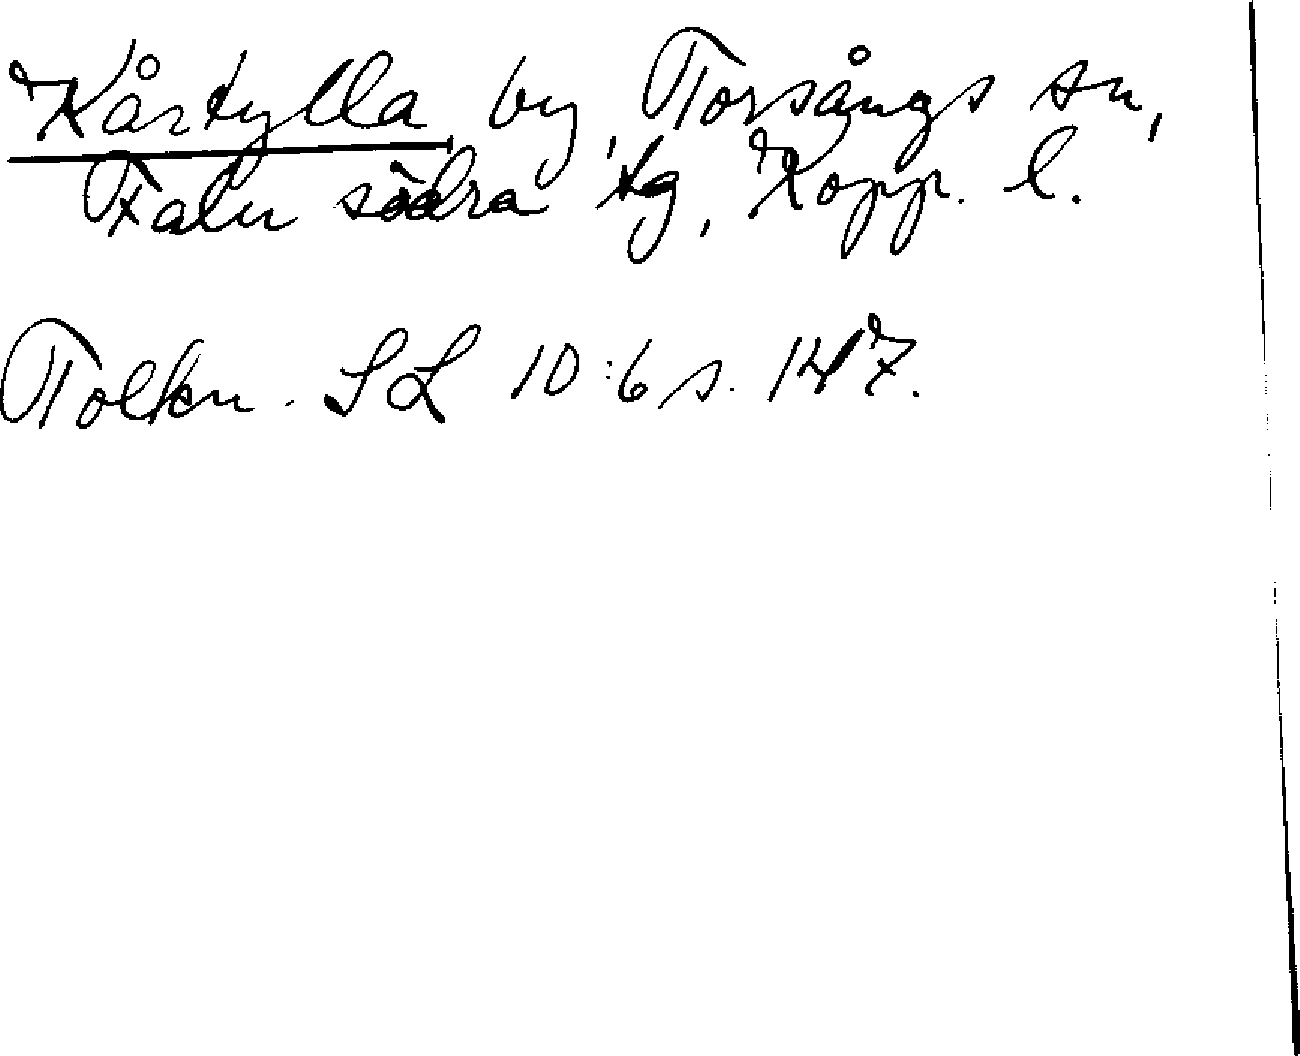 Kårtylla, by, Torsångs sn,
Falu södra tg, Kopp. l.
Tolkn. SL 10:6 s. 147.